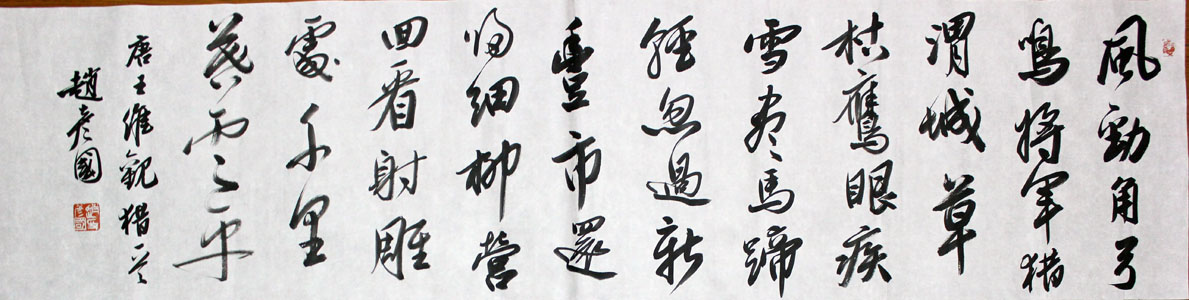 風勁角弓
鳴將軍猎
渭城草
枯鷹眼疾
雪尽馬蹄
輕忽過新
豐市還
归細柳營
回看射雕
處千里
暮雲平
唐王維觀猎
趙彦國